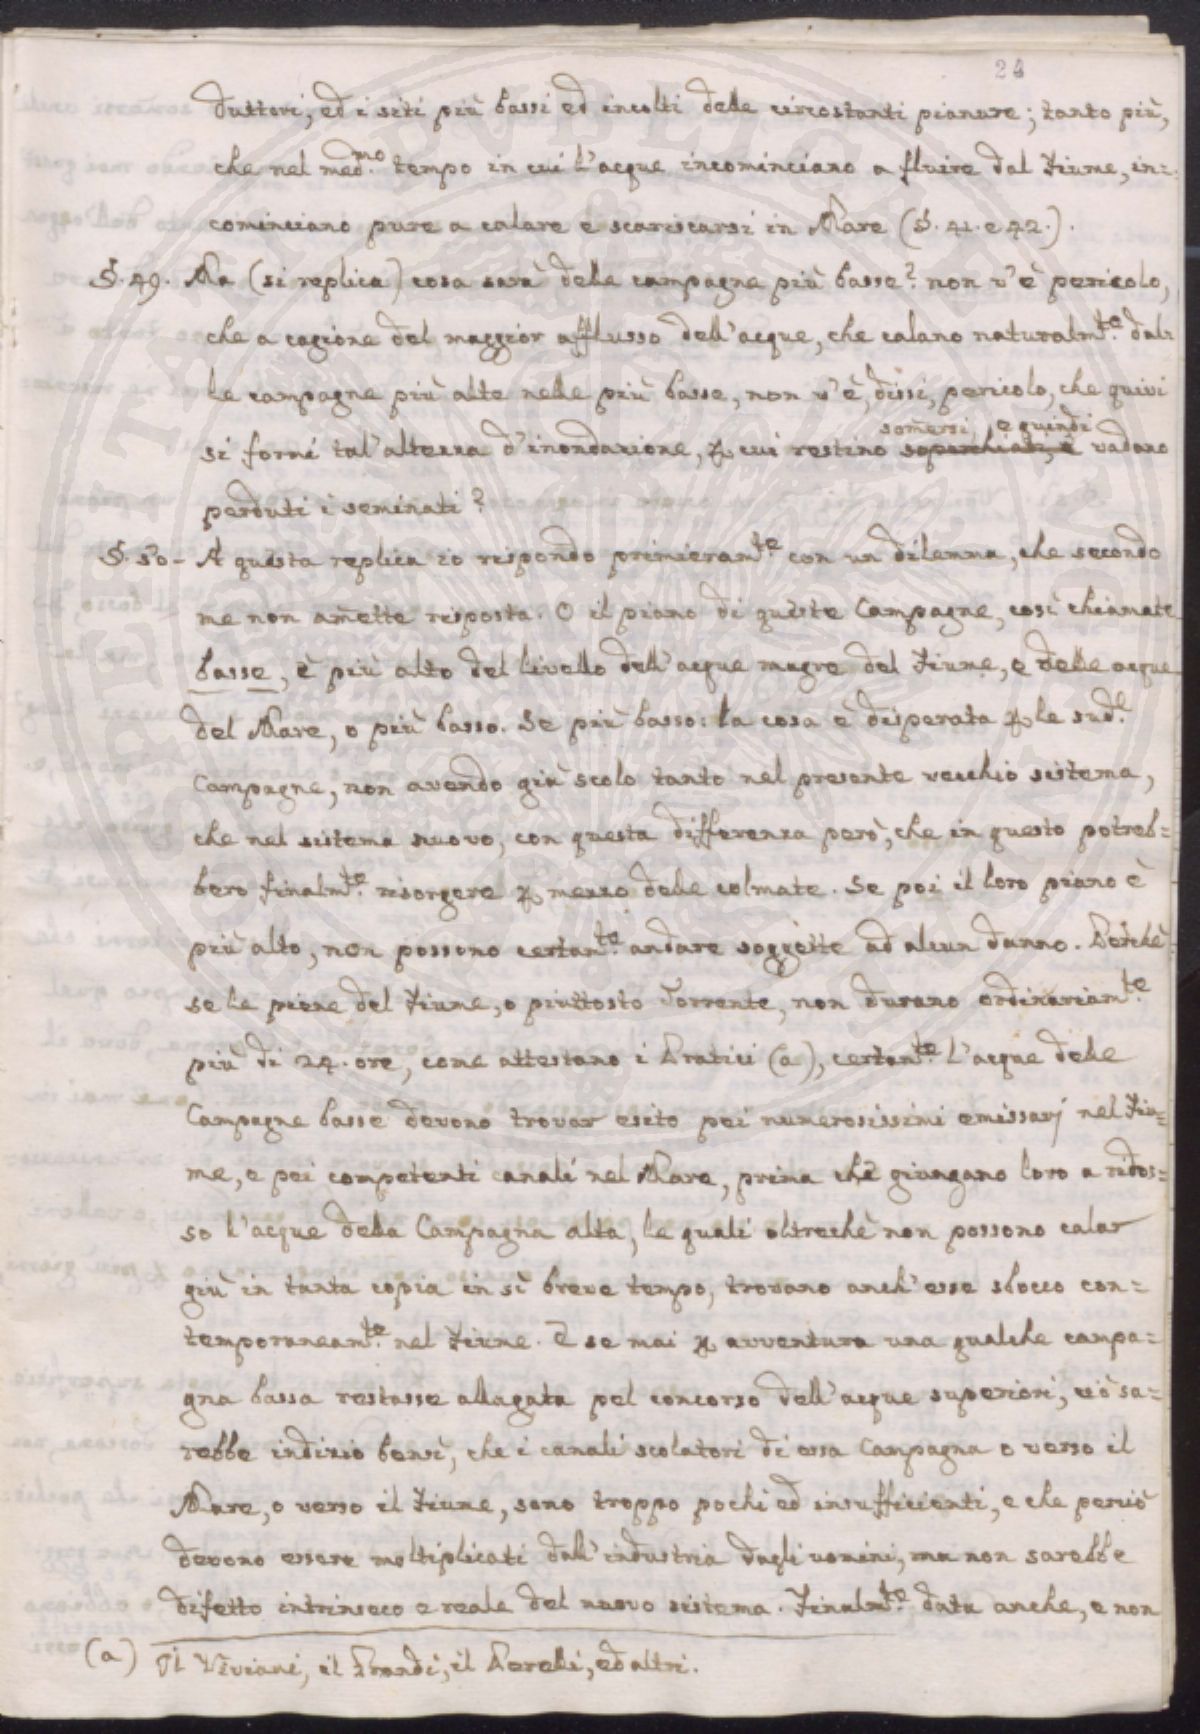 24
duttori, ed i siti più bassi ed incolti delle circostanti pianure; tanto più,
che nel med.mo tempo in cui l'acque incominciano a fluire dal Fiume, in=
cominciano pure a calare e scaricarsi in Mare (§. 41. e 42.).
§. 49. Ma (si replica) cosa sarà delle campagne più basse? non v'è pericolo,
che a cagione del maggior afflusso dell'acque, che calano naturalm.te dal=
le campagne più alte nelle più basse, non v'è, dissi, pericolo, che quivi
somersi, e quindi
si formi tal'altezza d'inondazione, p cui restino soperchiati, e vadano
perduti i seminati?
§. 50 - A questa replica io rispondo primieram.te con un dilemma, che secondo
me non amette risposta. O il piano di queste Campagne, così chiamate
basse, è più alto del livello dell'acque magre del Fiume, e delle acque
del Mare, o più basso. Se più basso: la cosa è disperata p le sud.e
Campagne, non avendo già scolo tanto nel presente vecchio sistema,
che nel sistema nuovo, con questa differenza però, che in questo potreb=
bero finalm.te risorgere p mezzo delle colmate. Se poi il loro piano è
più alto, non possono certam.te andare soggette ad alcun danno. Perchè
se le piene del Fiume, o piuttosto Torrente, non durano ordinariam.te
più di 24. ore, come attestano i Pratici (a), certam.te l'acque delle
Campagne basse devono trovar esito pei numerosissimi emissarj nel Fiu=
me, e pei competenti canali nel Mare, prima che giungano loro a ridos=
so l'acque della Campagna alta, le quali oltrechè non possono calar
giù in tanta copia in sì breve tempo, trovano anch'esse sbocco con=
temporaneam.te nel Fiume. E se mai p avventura una qualche campa=
gna bassa restasse allagata pel concorso dell'acque superiori, ciò sa=
rebbe indizio bensì, che i canali scolatori di essa Campagna o verso il
Mare, o verso il Fiume, sono troppo pochi ed insufficienti, e che perciò
devono essere moltiplicati dall'industria dagli uomini, ma non sarebbe
difetto intrinseco e reale del nuovo sistema. Finalm.te data anche, e non
(a) Il Viviani, il Grandi, il Perelli, ed altri.